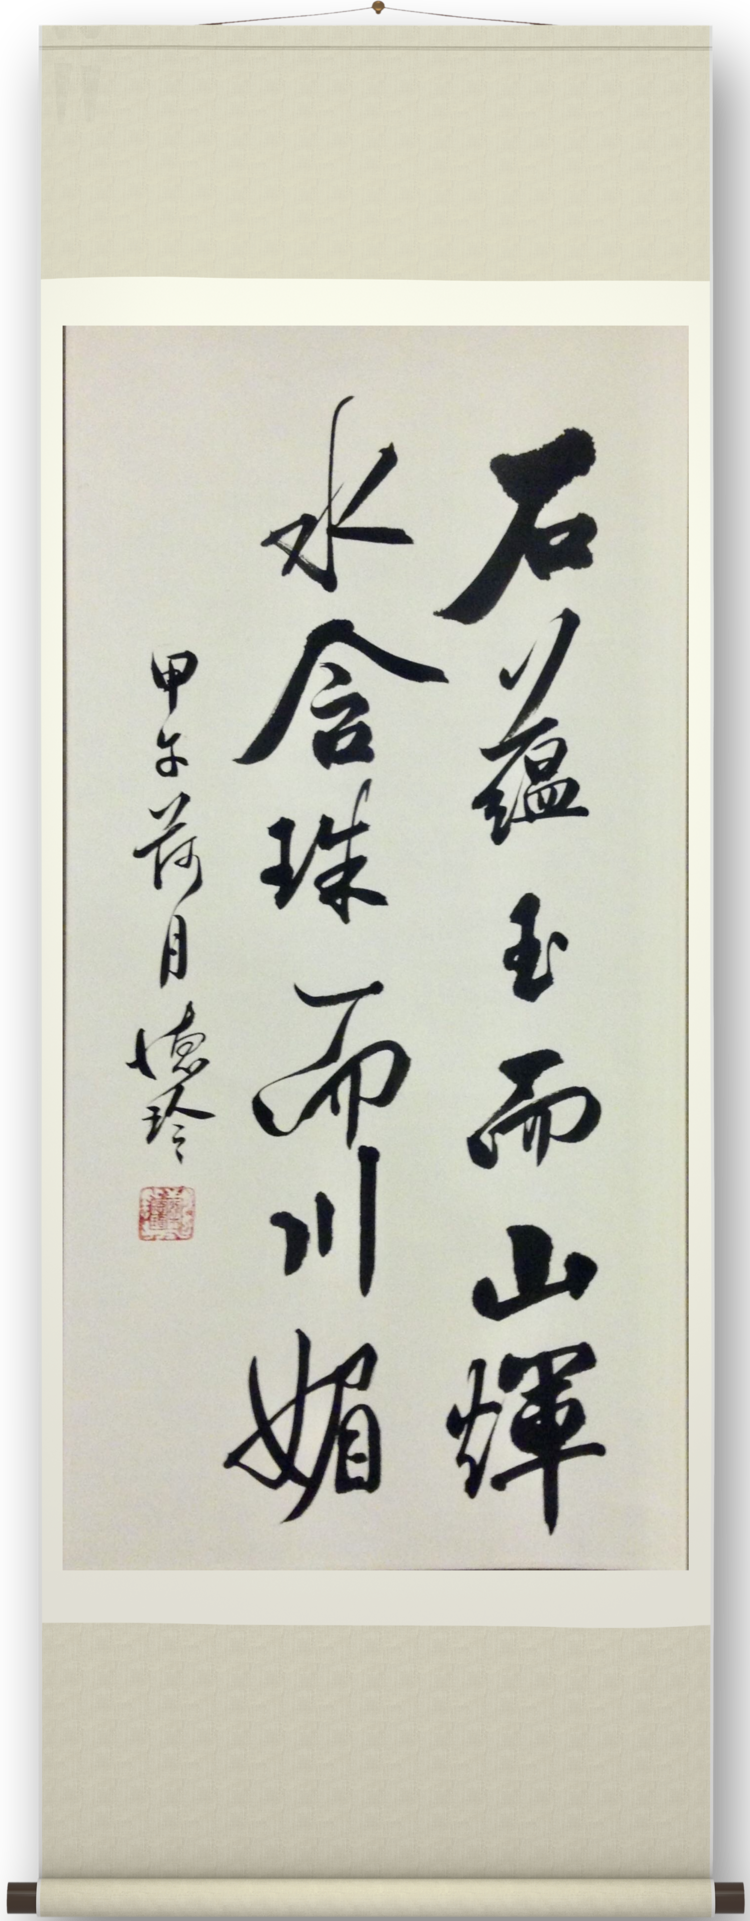 石蕴玉而山輝
水含珠而川媚
甲午荷月德玲